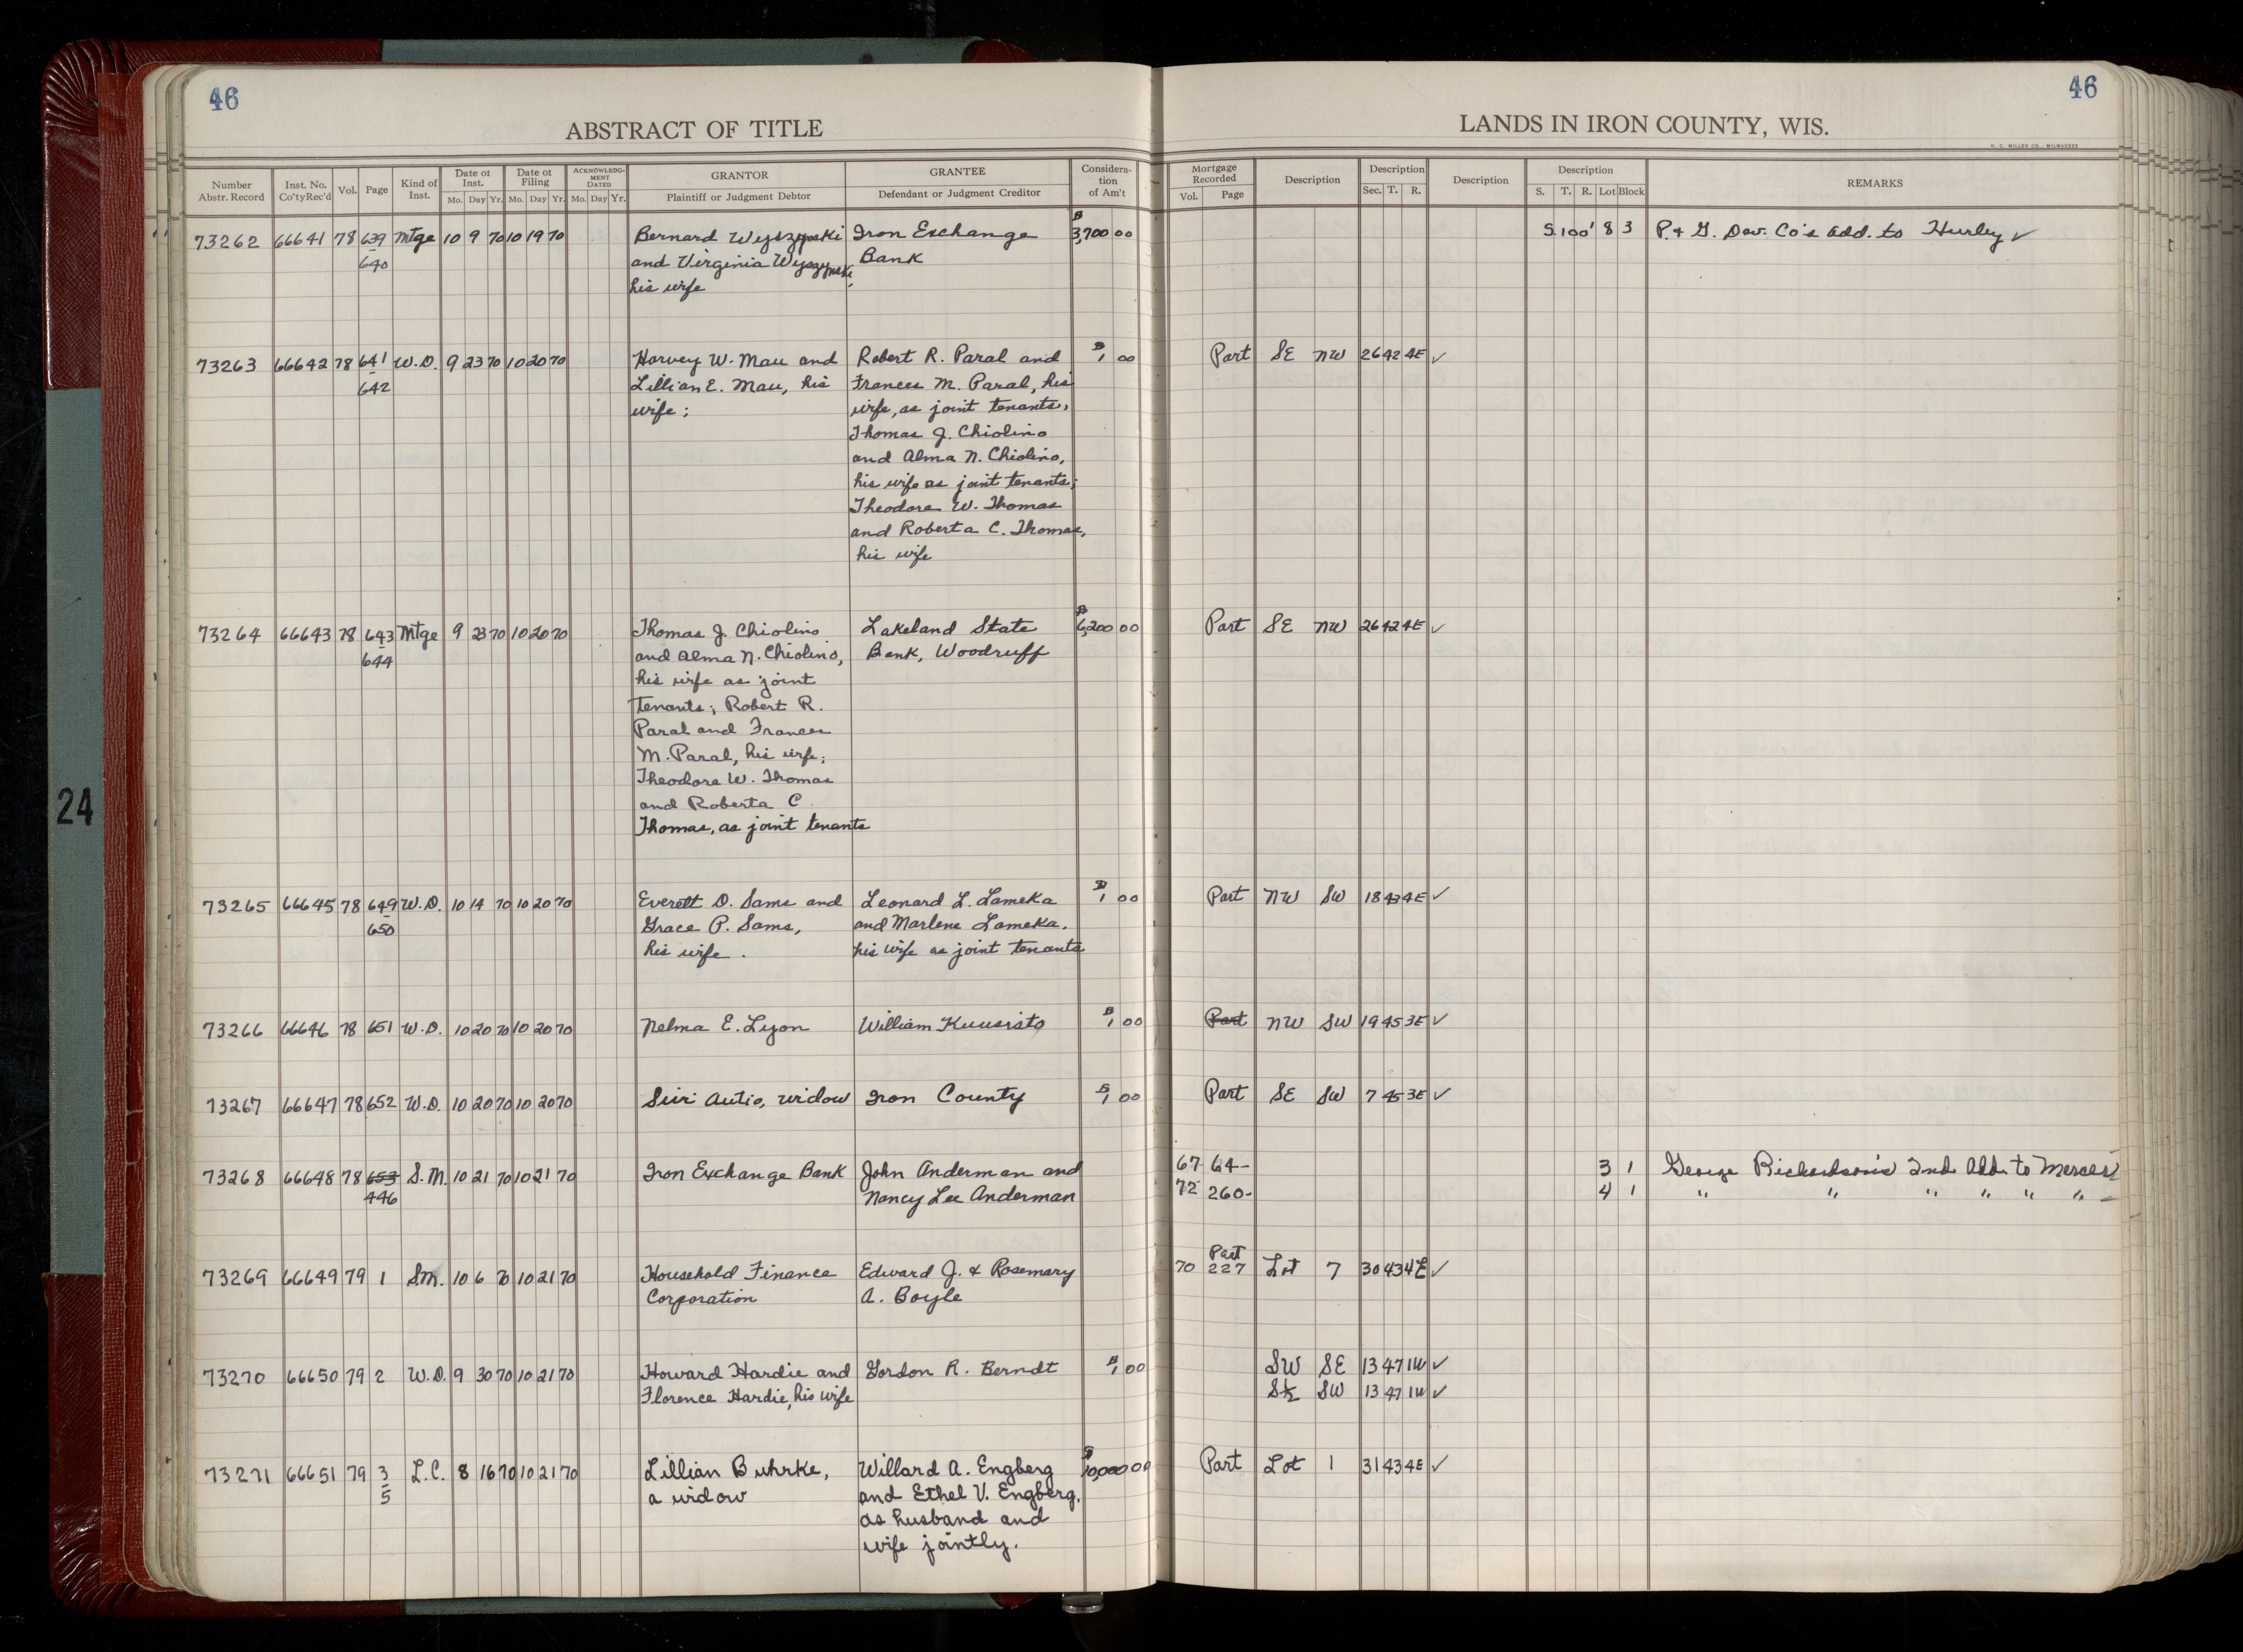 46
46
ABSTRACT OF TITLE
LANDS IN IRON COUNTY, WIS.
H. C. MILLER CO., MILWAUKEE
Number Abstr. Record | Inst. No. Co'ty Rec'd | Vol. | Page | Kind of Inst. | Date of Inst. Mo. Day Yr. | Date of Filing Mo. Day Yr. | ACKNOWLEDGMENT DATED Mo. Day Yr. | GRANTOR Plaintiff or Judgment Debtor | GRANTEE Defendant or Judgment Creditor | Consideration of Am't | Mortgage Recorded Vol. Page | Description | Description Sec. T. R. | Description | Description S. T. R. Lot Block | REMARKS
73262 66641 78 639 Mtge 10 9 70 10 19 70 Bernard Wyszynski Iron Exchange $3,700 00 S.100' 8 3 P. & G. Dev. Co's Add. to Hurley ✓
640 and Virginia Wyszynski, Bank
his wife
73263 66642 78 641 W.D. 9 23 70 10 20 70 Harvey W. Mau and Robert R. Paral and $1 00 Part SE NW 26 42 4E ✓
642 Lillian E. Mau, his Frances M. Paral, his
wife; wife, as joint tenants,
Thomas J. Chiolino
and Alma N. Chiolino,
his wife as joint tenants;
Theodore W. Thomas
and Roberta C. Thomas,
his wife
73264 66643 78 643 Mtge 9 23 70 10 20 70 Thomas J. Chiolino Lakeland State $6,200 00 Part SE NW 26 42 4E ✓
644 and Alma N. Chiolino, Bank, Woodruff
his wife as joint
tenants; Robert R.
Paral and Frances
M. Paral, his wife;
Theodore W. Thomas
and Roberta C.
Thomas, as joint tenants
73265 66645 78 649 W.D. 10 14 70 10 20 70 Everett D. Sams and Leonard L. Lameka $1 00 Part NW SW 18 43 4E ✓
650 Grace P. Sams, and Marlene Lameka,
his wife. his wife as joint tenants
73266 66646 78 651 W.D. 10 20 70 10 20 70 Nelma E. Lyon William Kuusisto $1 00 Part NW SW 19 45 3E ✓
73267 66647 78 652 W.D. 10 20 70 10 20 70 Siiri Autio, widow Iron County $1 00 Part SE SW 7 45 3E ✓
73268 66648 78 653 S.M. 10 21 70 10 21 70 Iron Exchange Bank John Anderman and 67 64- 3 1 George Richardson's 2nd Add. to Mercer ✓
446 Nancy Lee Anderman 72 260- 4 1 " " " " " "
73269 66649 79 1 S.M. 10 6 70 10 21 70 Household Finance Edward J. & Rosemary 70 Part 227 Lot 7 30 43 4E ✓
Corporation A. Boyle
73270 66650 79 2 W.D. 9 30 70 10 21 70 Howard Hardie and Gordon R. Berndt $1 00 SW SE 13 47 1W ✓
Florence Hardie, his wife S½ SW 13 47 1W ✓
73271 66651 79 3 L.C. 8 16 70 10 21 70 Lillian Buhrke, Willard A. Engberg $10,000 00 Part Lot 1 31 43 4E ✓
5 a widow and Ethel V. Engberg,
as husband and
wife jointly.
24